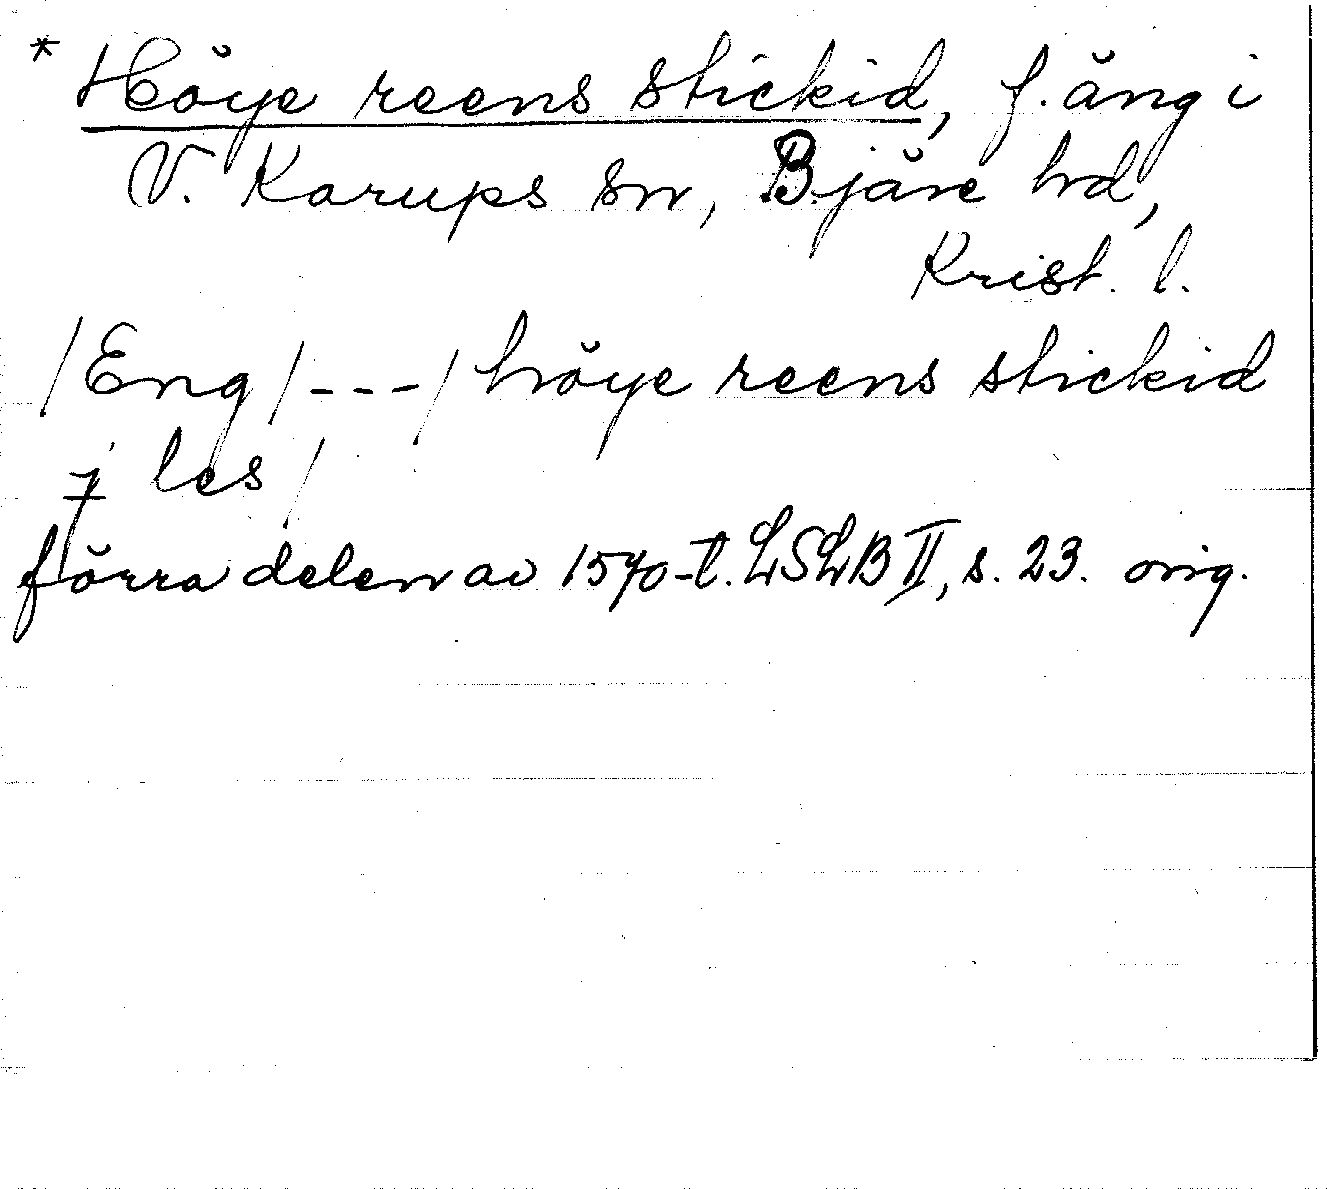 * Höye reens stickid, f. äng i
V. Karups sn, Bjäre hd,
Krist. l.
/Eng/---/ höye reens stickid
j les/
förra delen av 1570-t. LSLB II, s. 23. orig.